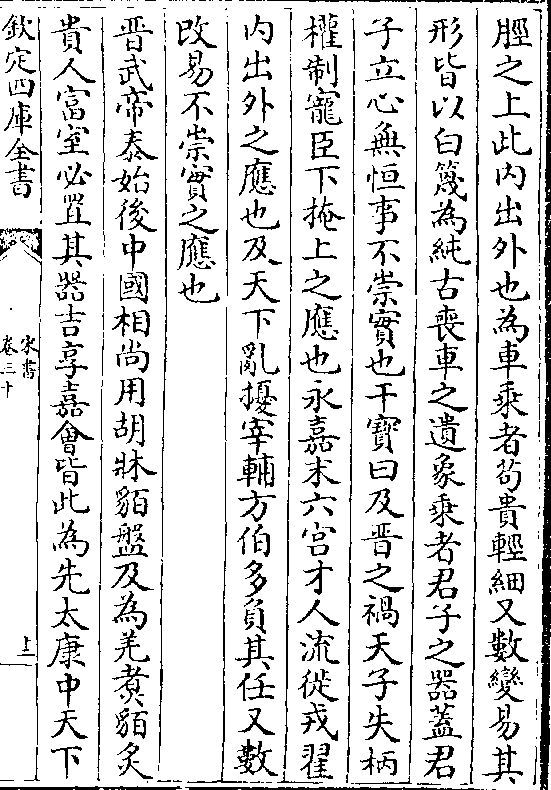 脛之上此内出外也為車乘者茍貴輕細又數變易其
形皆以白篾為純古喪車之遺象乘者君子之器蓋君
子立心無恒事不崇實也干寶曰及晋之禍天子失柄
權制寵臣下掩上之應也永嘉末六宫才人流徙戎翟
内出外之應也及天下亂擾宰輔方伯多負其任又數
改易不崇實之應也
晋武帝泰始後中國相尚用胡牀貊盤及為羌煑貊炙
貴人富室必置其器吉享嘉會皆此為先太康中天下
欽定四庫全書
宋書
卷三十